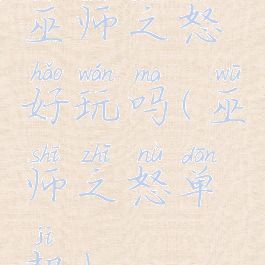 巫师之怒
hǎo wán ma wū
好玩吗(巫
shī zhī nù dān
师之怒单
jī